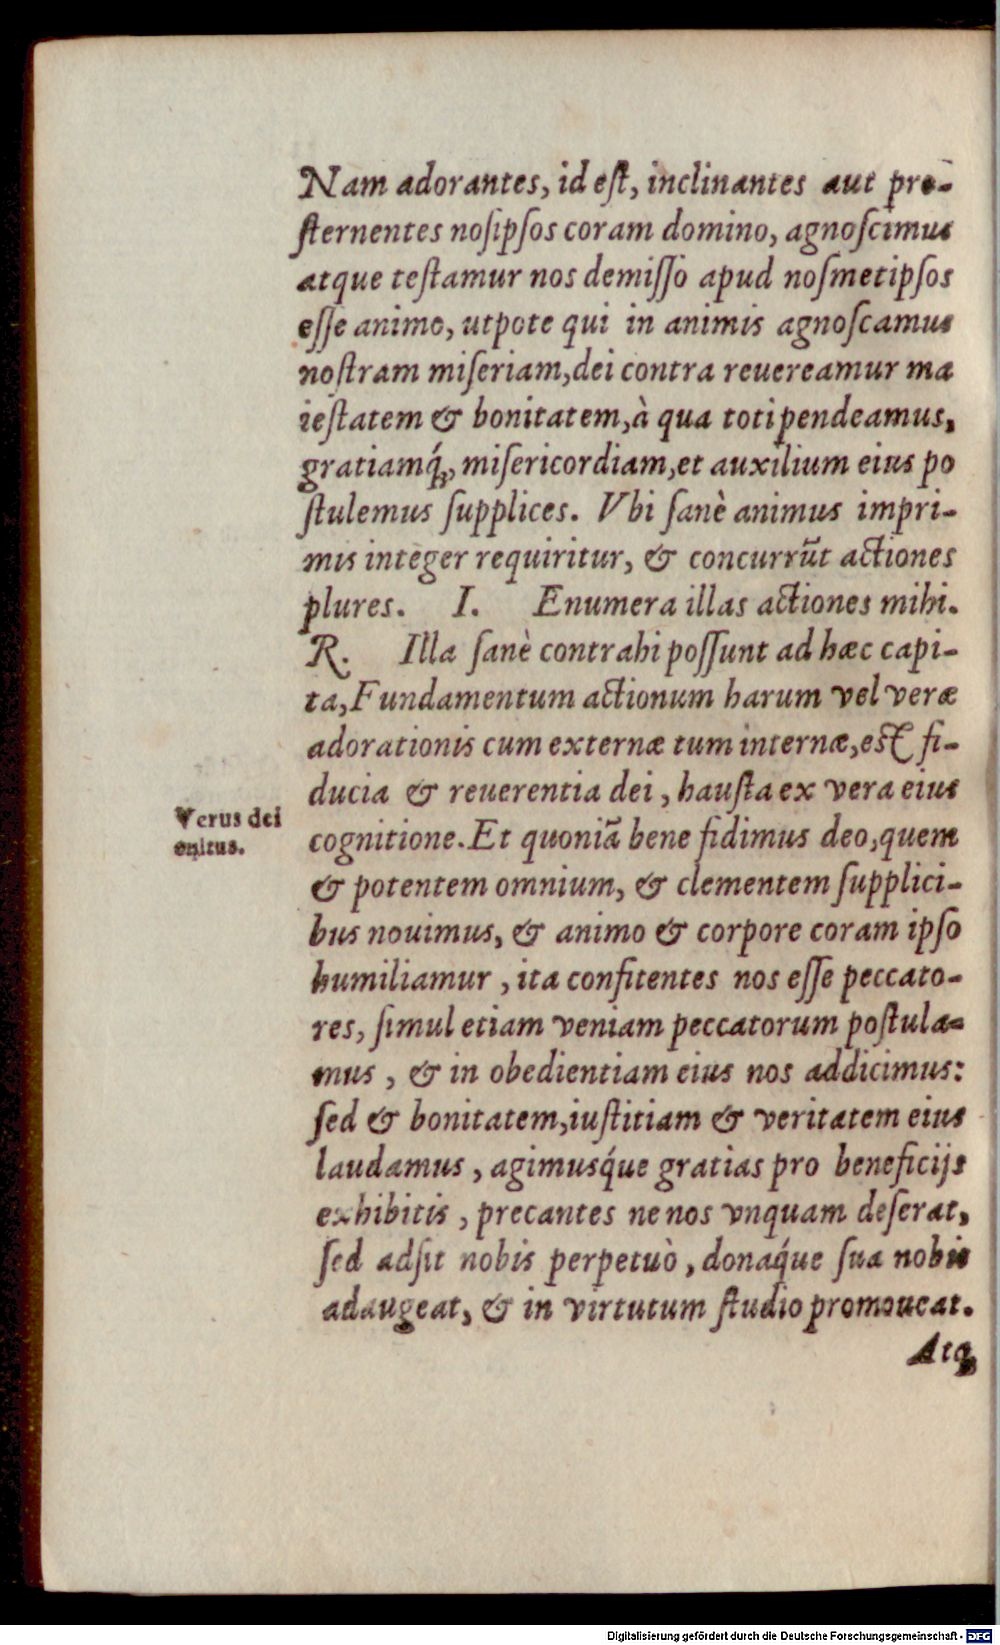 Nam adorantes, id est, inclinantes aut pro-
sternentes nosipsos coram domino, agnoscimus
atque testamur nos demisso apud nosmetipsos
esse animo, utpote qui in animis agnoscamus
nostram miseriam, dei contra reuereamur ma
iestatem & bonitatem, à qua toti pendeamus,
gratiamq́;, misericordiam, et auxilium eius po
stulemus supplices. Vbi sanè animus impri-
mis integer requiritur, & concurrũt actiones
plures. I. Enumera illas actiones mihi.
R. Illa sanè contrahi possunt ad hæc capi-
ta, Fundamentum actionum harum vel veræ
adorationis cum externæ tum internæ, est fi-
ducia & reuerentia dei, hausta ex vera eius
Verus dei
cultus.
cognitione. Et quoniã bene fidimus deo, quem
& potentem omnium, & clementem supplici-
bus nouimus, & animo & corpore coram ipso
humiliamur, ita confitentes nos esse peccato-
res, simul etiam veniam peccatorum postula-
mus, & in obedientiam eius nos addicimus:
sed & bonitatem, iustitiam & veritatem eius
laudamus, agimusq́ue gratias pro beneficijs
exhibitis, precantes ne nos vnquam deserat,
sed adsit nobis perpetuò, donaq́ue sua nobis
adaugeat, & in virtutum studio promoueat.
Atq;
Digitalisierung gefördert durch die Deutsche Forschungsgemeinschaft - DFG